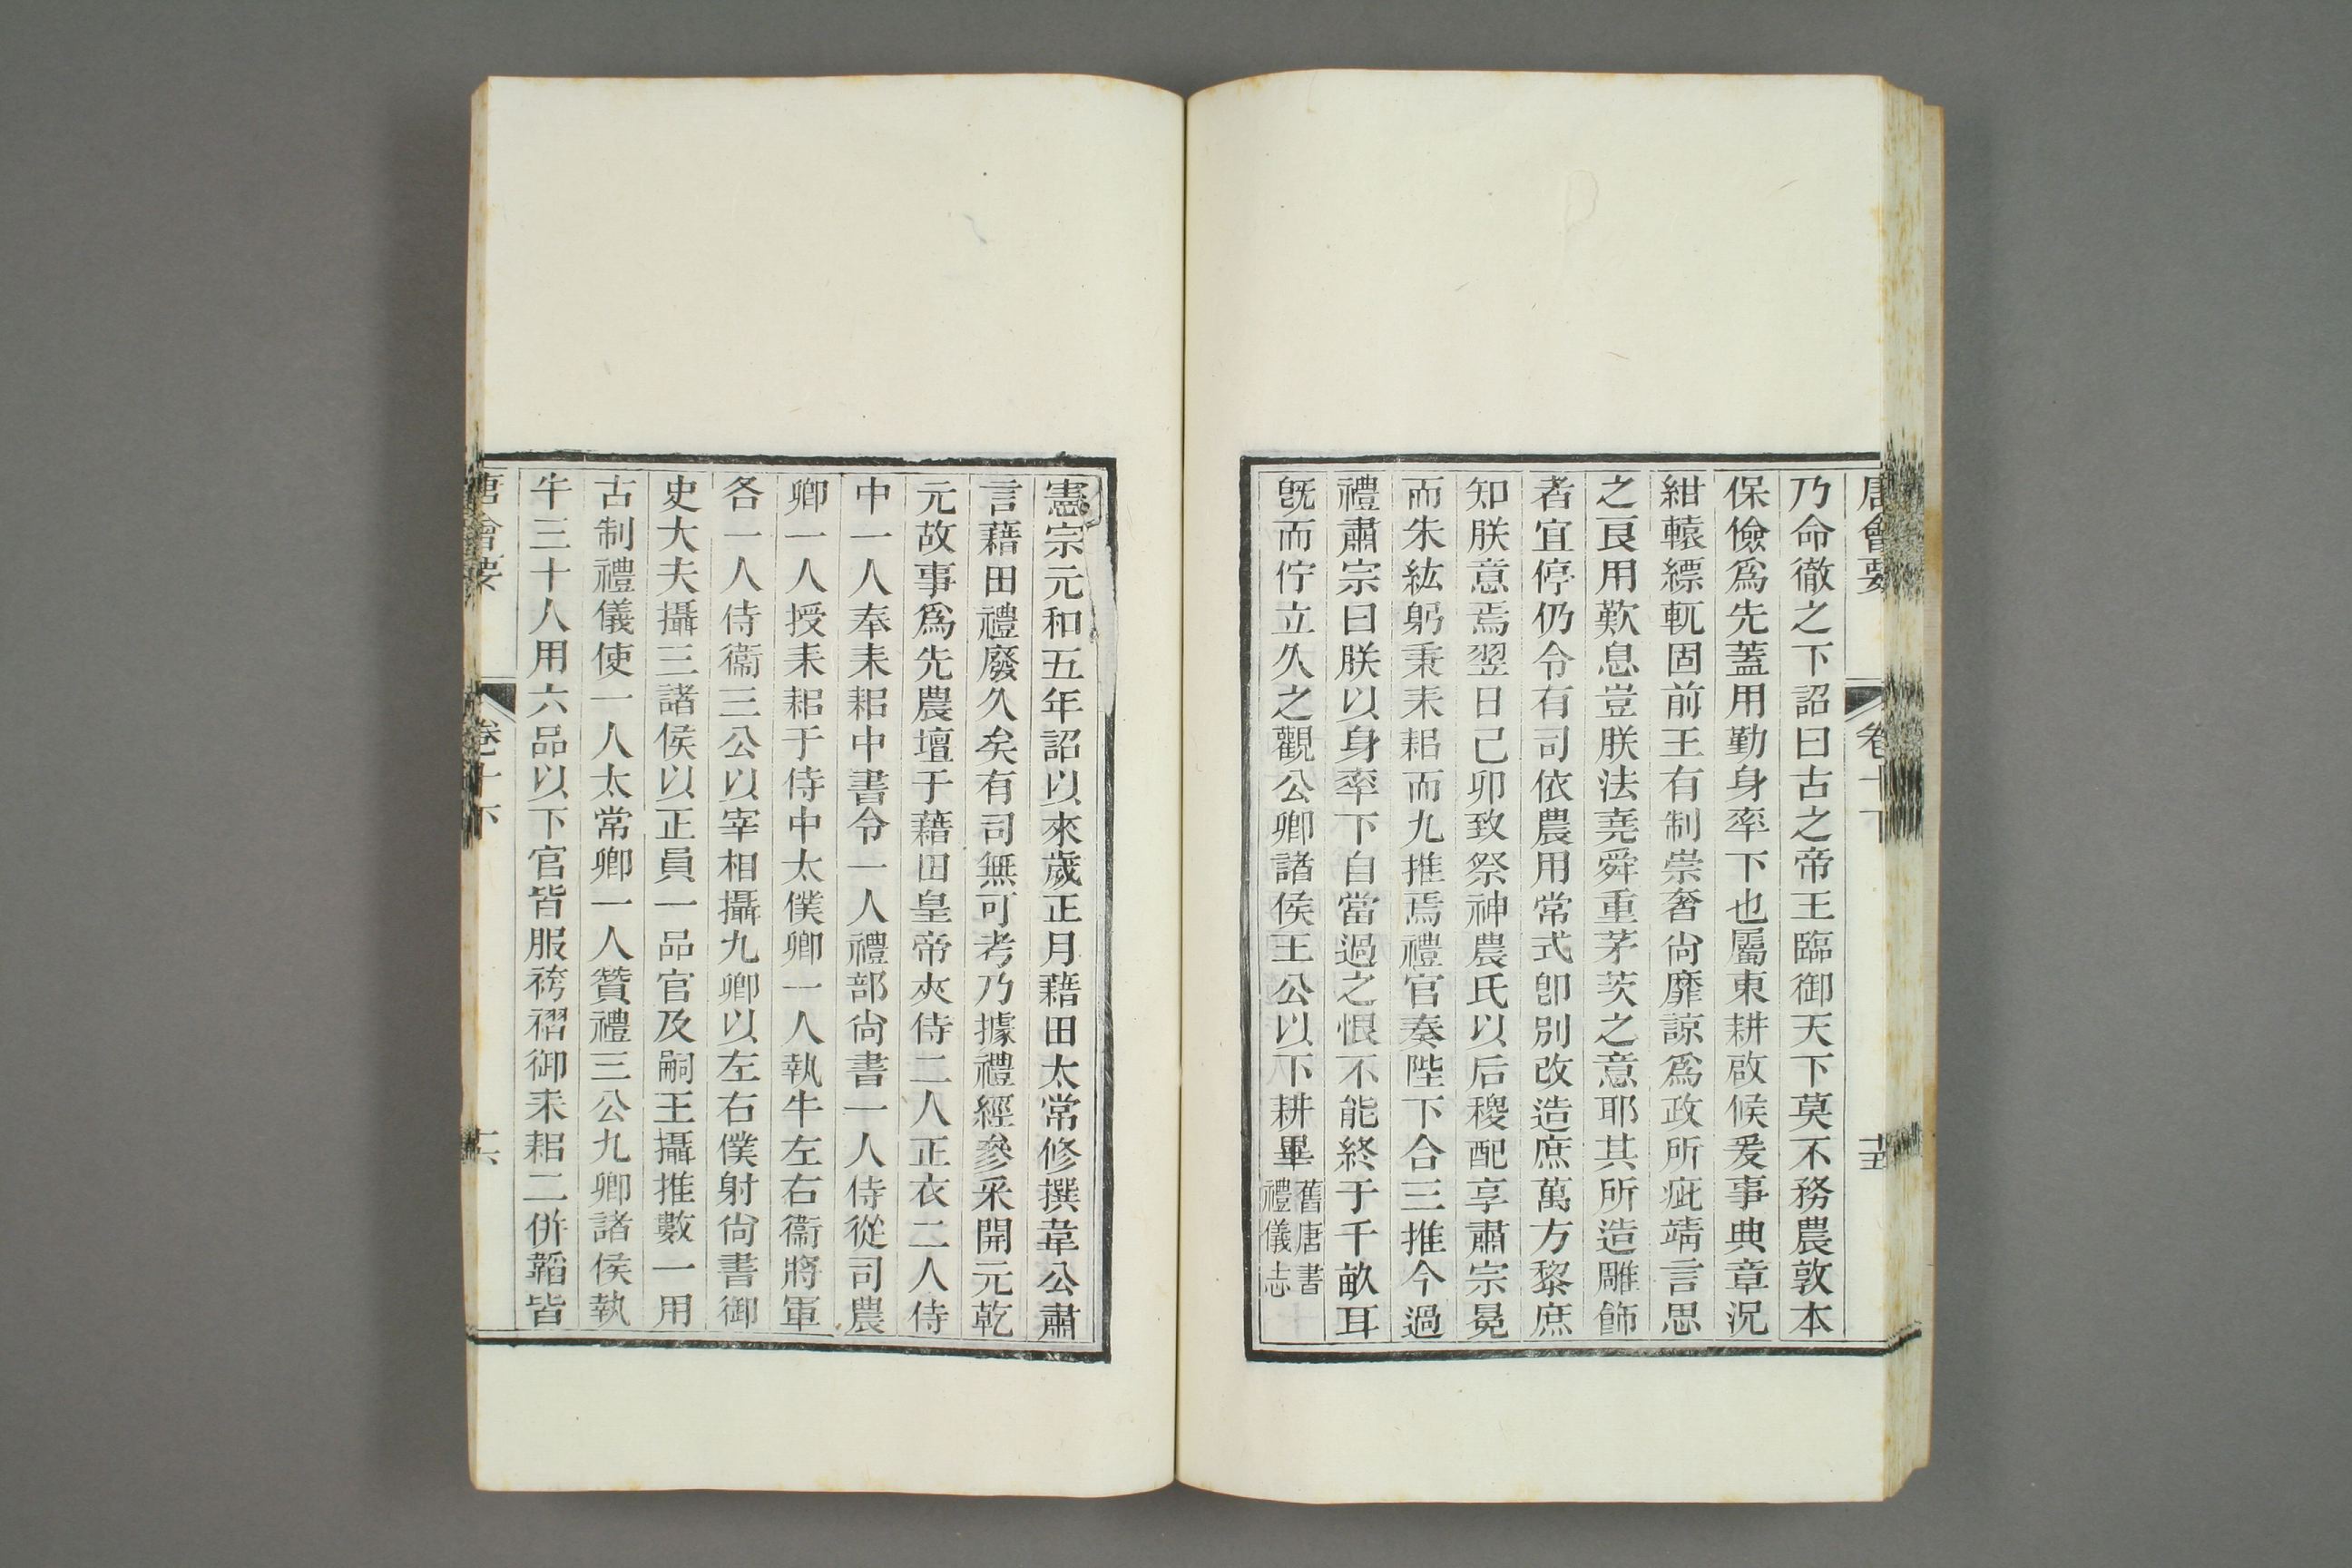 唐會要 卷十下 十五
乃命徹之下詔曰古之帝王臨御天下莫不務農敦本
保儉爲先蓋用勤身率下也屬東耕啟候爰事典章況
紺轅縹軏固前王有制崇奢尙靡諒爲政所疵靖言思
之良用歎息豈朕法堯舜重茅茨之意耶其所造雕飾
者宜停仍令有司依農用常式卽別改造庶萬方黎庶
知朕意焉翌日己卯致祭神農氏以后稷配享肅宗冕
而朱紘躬秉耒耜而九推焉禮官奏陛下合三推今過
禮肅宗曰朕以身率下自當過之恨不能終于千畝耳
旣而佇立久之觀公卿諸侯王公以下耕畢舊唐書
禮儀志
憲宗元和五年詔以來歲正月藉田太常修撰韋公肅
言藉田禮廢久矣有司無可考乃據禮經參采開元乾
元故事爲先農壇于藉田皇帝夾侍二人正衣二人侍
中一人奉耒耜中書令一人禮部尙書一人侍從司農
卿一人授耒耜于侍中太僕卿一人執牛左右衞將軍
各一人侍衞三公以宰相攝九卿以左右僕射尙書御
史大夫攝三諸侯以正員一品官及嗣王攝推數一用
古制禮儀使一人太常卿一人贊禮三公九卿諸侯執
牛三十人用六品以下官皆服袴褶御耒耜二併韜皆
唐會要 卷十下 十六